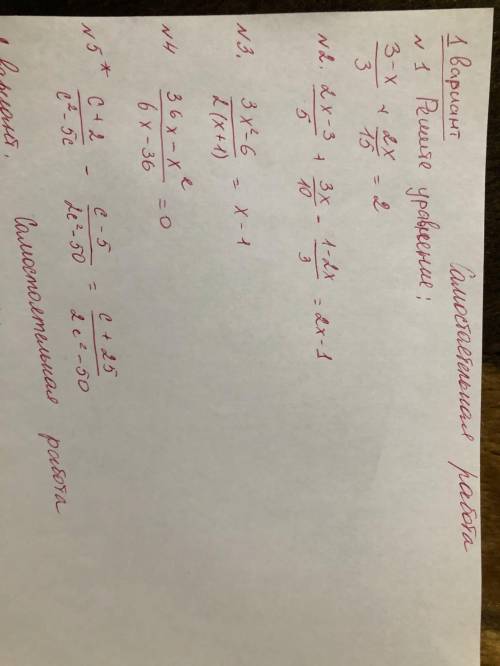 Самостоятельная работа
1 вариант
№1 Решите уравнение:
(3-x)/3 + 2x/15 = 2
№2. (2x-3)/5 + 3x/10 - (1-2x)/3 = 2x-1
№3. (3x²-6)/(2(x+1)) = x-1
№4 (36x-x²)/(6x-36) = 0
№5* (c+2)/(c²-5c) - (c-5)/(2c²-50) = (c+25)/(2c²-50)
Самостоятельная работа
вариант.